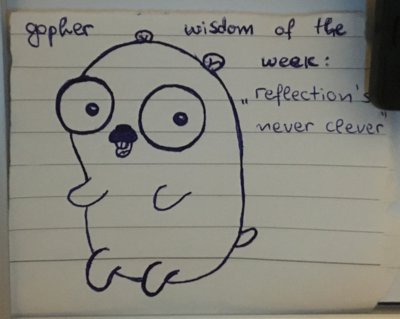 gopher wisdom of the
week:
„reflection's
never clever"